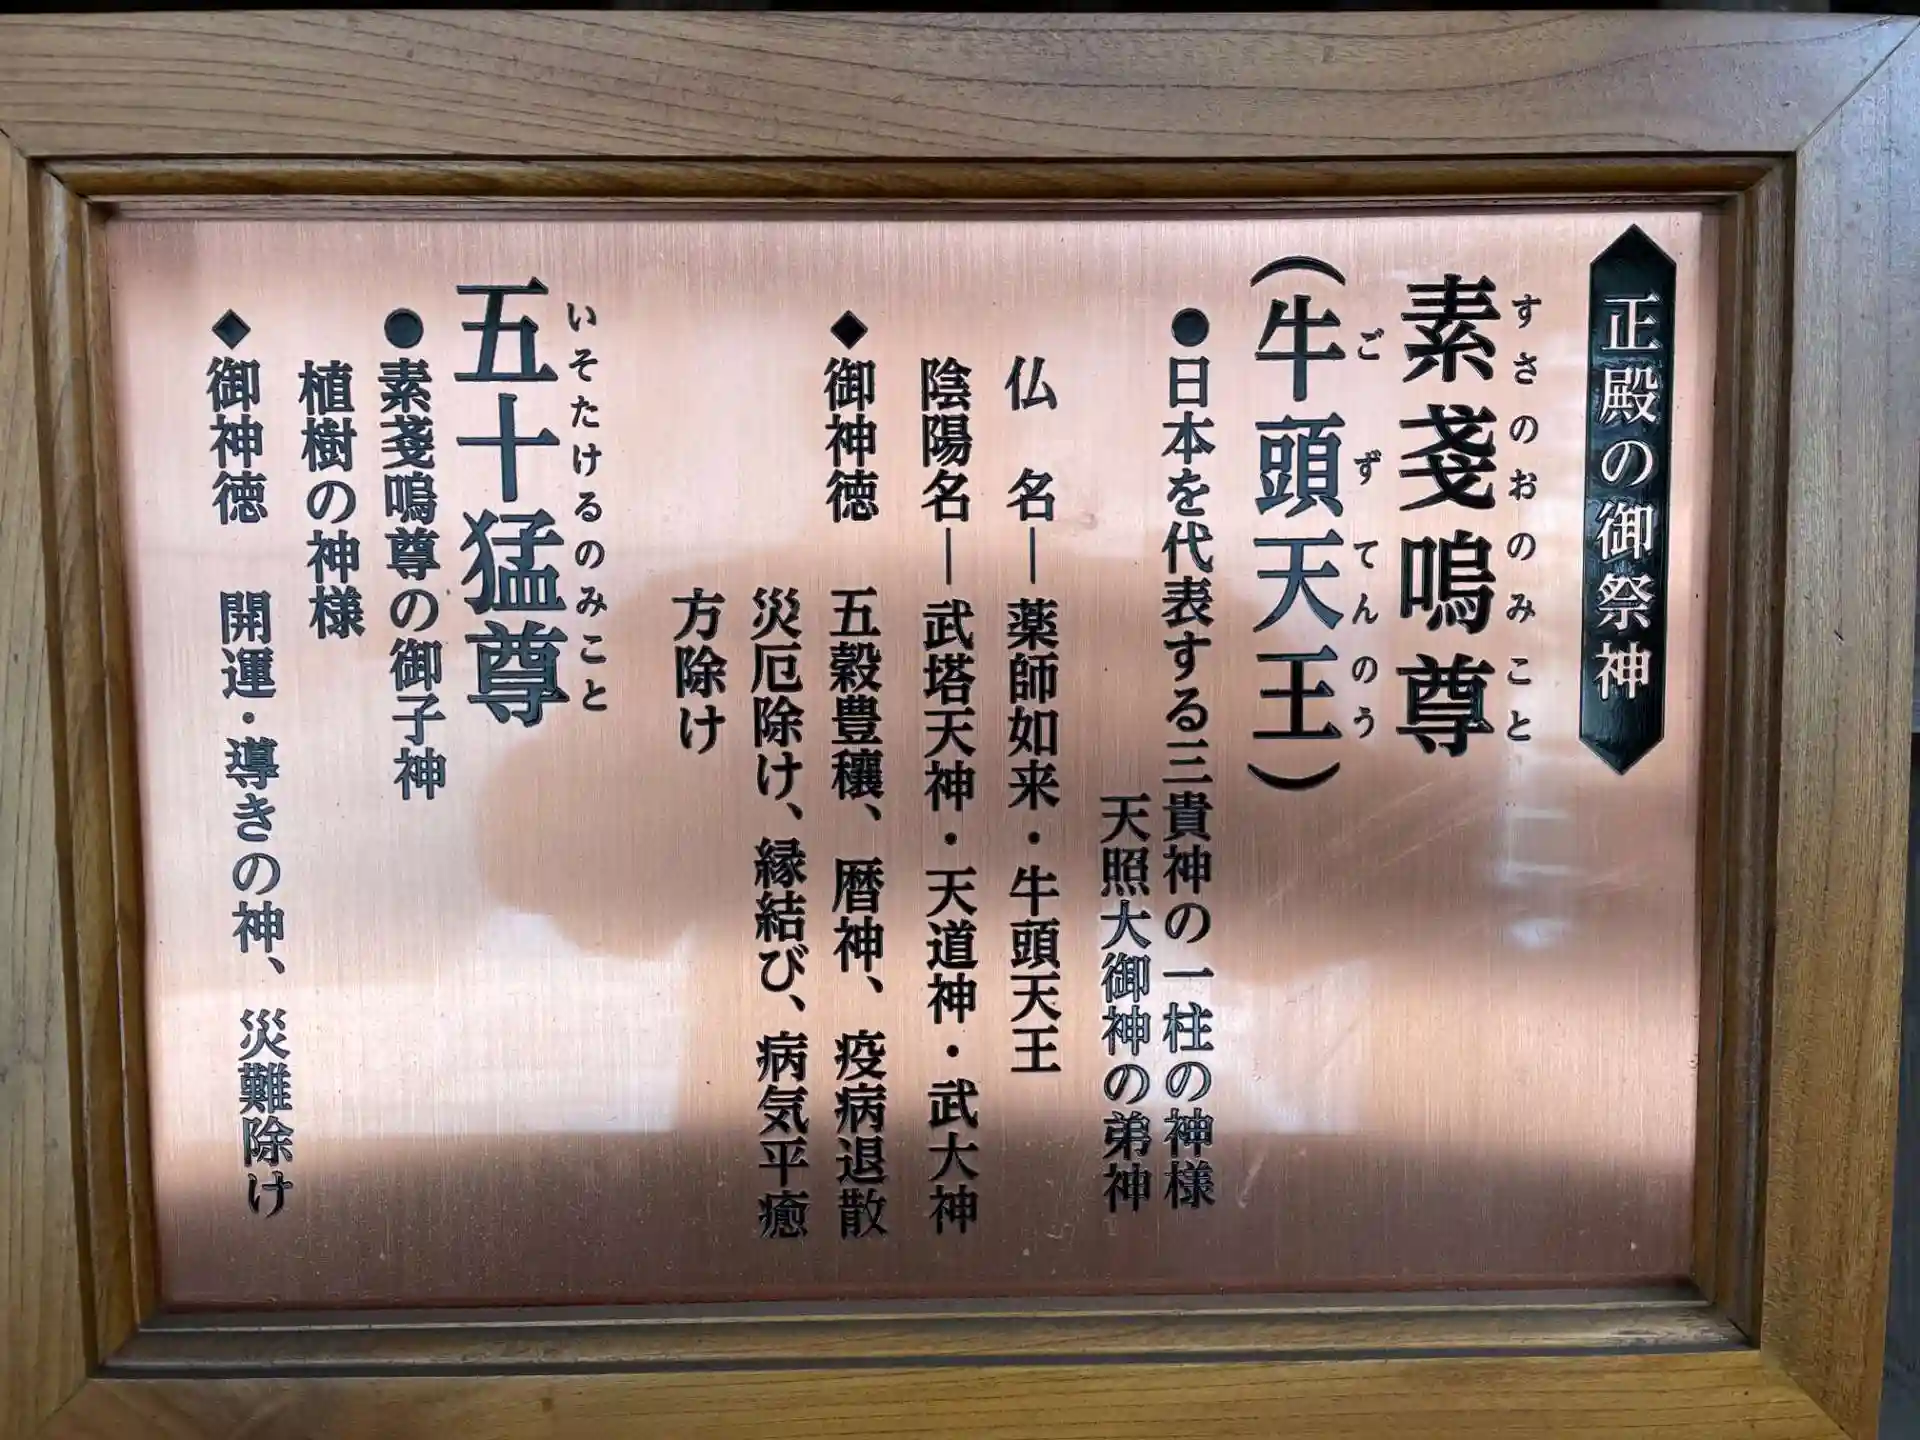 正殿の御祭神
素戔嗚尊
すさのおのみこと
（牛頭天王）
ごずてんのう
●日本を代表する三貴神の一柱の神様
天照大御神の弟神
仏　名―薬師如来・牛頭天王
陰陽名―武塔天神・天道神・武大神
◆御神徳　五穀豊穣、暦神、疫病退散
災厄除け、縁結び、病気平癒
方除け
五十猛尊
いそたけるのみこと
●素戔嗚尊の御子神
植樹の神様
◆御神徳　開運・導きの神、災難除け